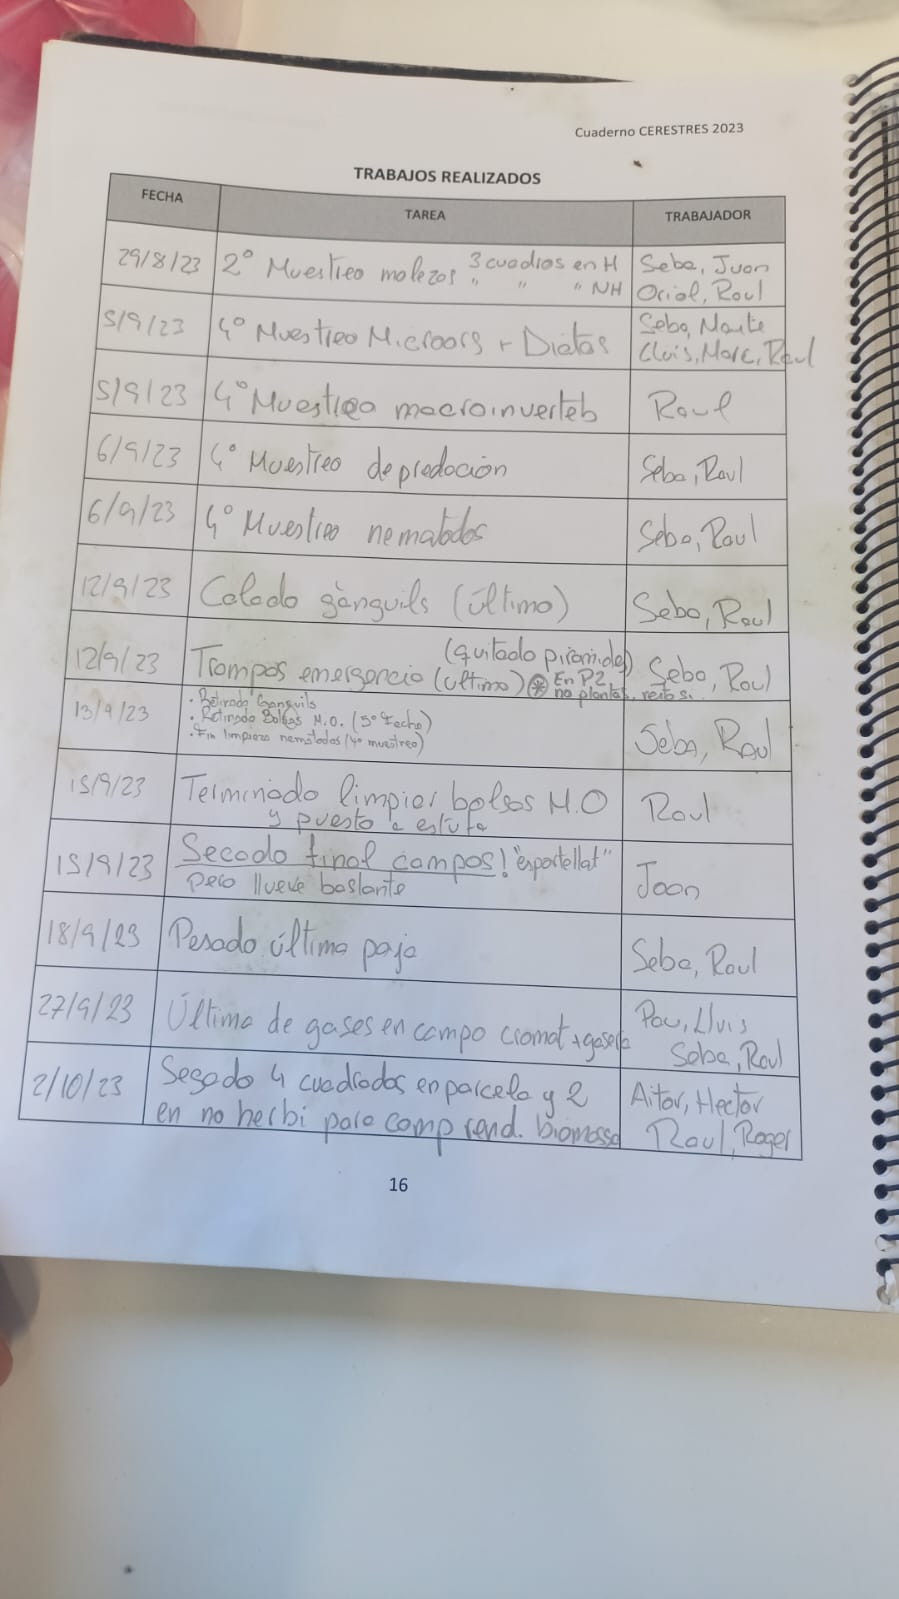 Cuaderno CERESTRES 2023
TRABAJOS REALIZADOS
FECHA TAREA TRABAJADOR
29/8/23 2º Muestreo malezas 3 cuadros en H Seba, Juan
" " " NH Oriol, Raul
5/9/23 4º Muestreo Microorg + Dietas Seba, Maite
Lluis, Marc, Raul
5/9/23 4º Muestreo macroinverteb Raul
6/9/23 4º Muestreo depredación Seba, Raul
6/9/23 4º Muestreo nematodos Seba, Raul
12/9/23 Calado gànguils (último) Seba, Raul
(quitado pirámides)
12/9/23 Trampas emergencia (último) * En P2 Seba, Raul
no plantas, resto si.
13/9/23 • Retirada Ganguils Seba, Raul
• Retirada Bolsas M.O. (5º Fecha)
• Fin limpieza nematodos (4º muestreo)
15/9/23 Terminado limpiar bolsas M.O Raul
y puesto a estufa
15/9/23 Secado final campos! "esportellat" Joan
pero llueve bastante
18/9/23 Pesado última paja Seba, Raul
27/9/23 Última de gases en campo cromat + gasera Pau, Lluis
Seba, Raul
2/10/23 Segado 4 cuadrados en parcela y 2 Aitor, Hector
en no herbi para comp rend. biomasa Raul, Roger
16